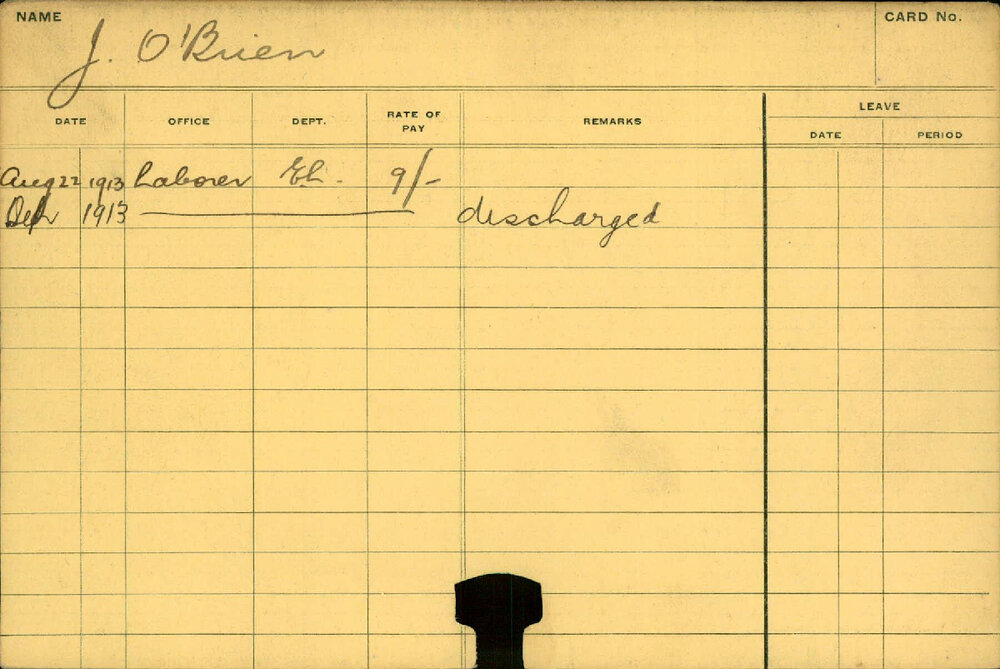 NAME
CARD No.
J. O'Brien
DATE OFFICE DEPT. RATE OF PAY REMARKS LEAVE
DATE PERIOD
Aug 22 1913 Laborer 9/-
1913 discharged